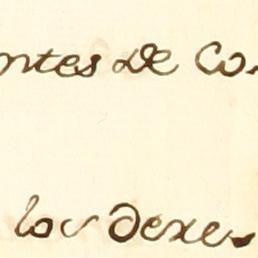 ntes de Co
los dexe